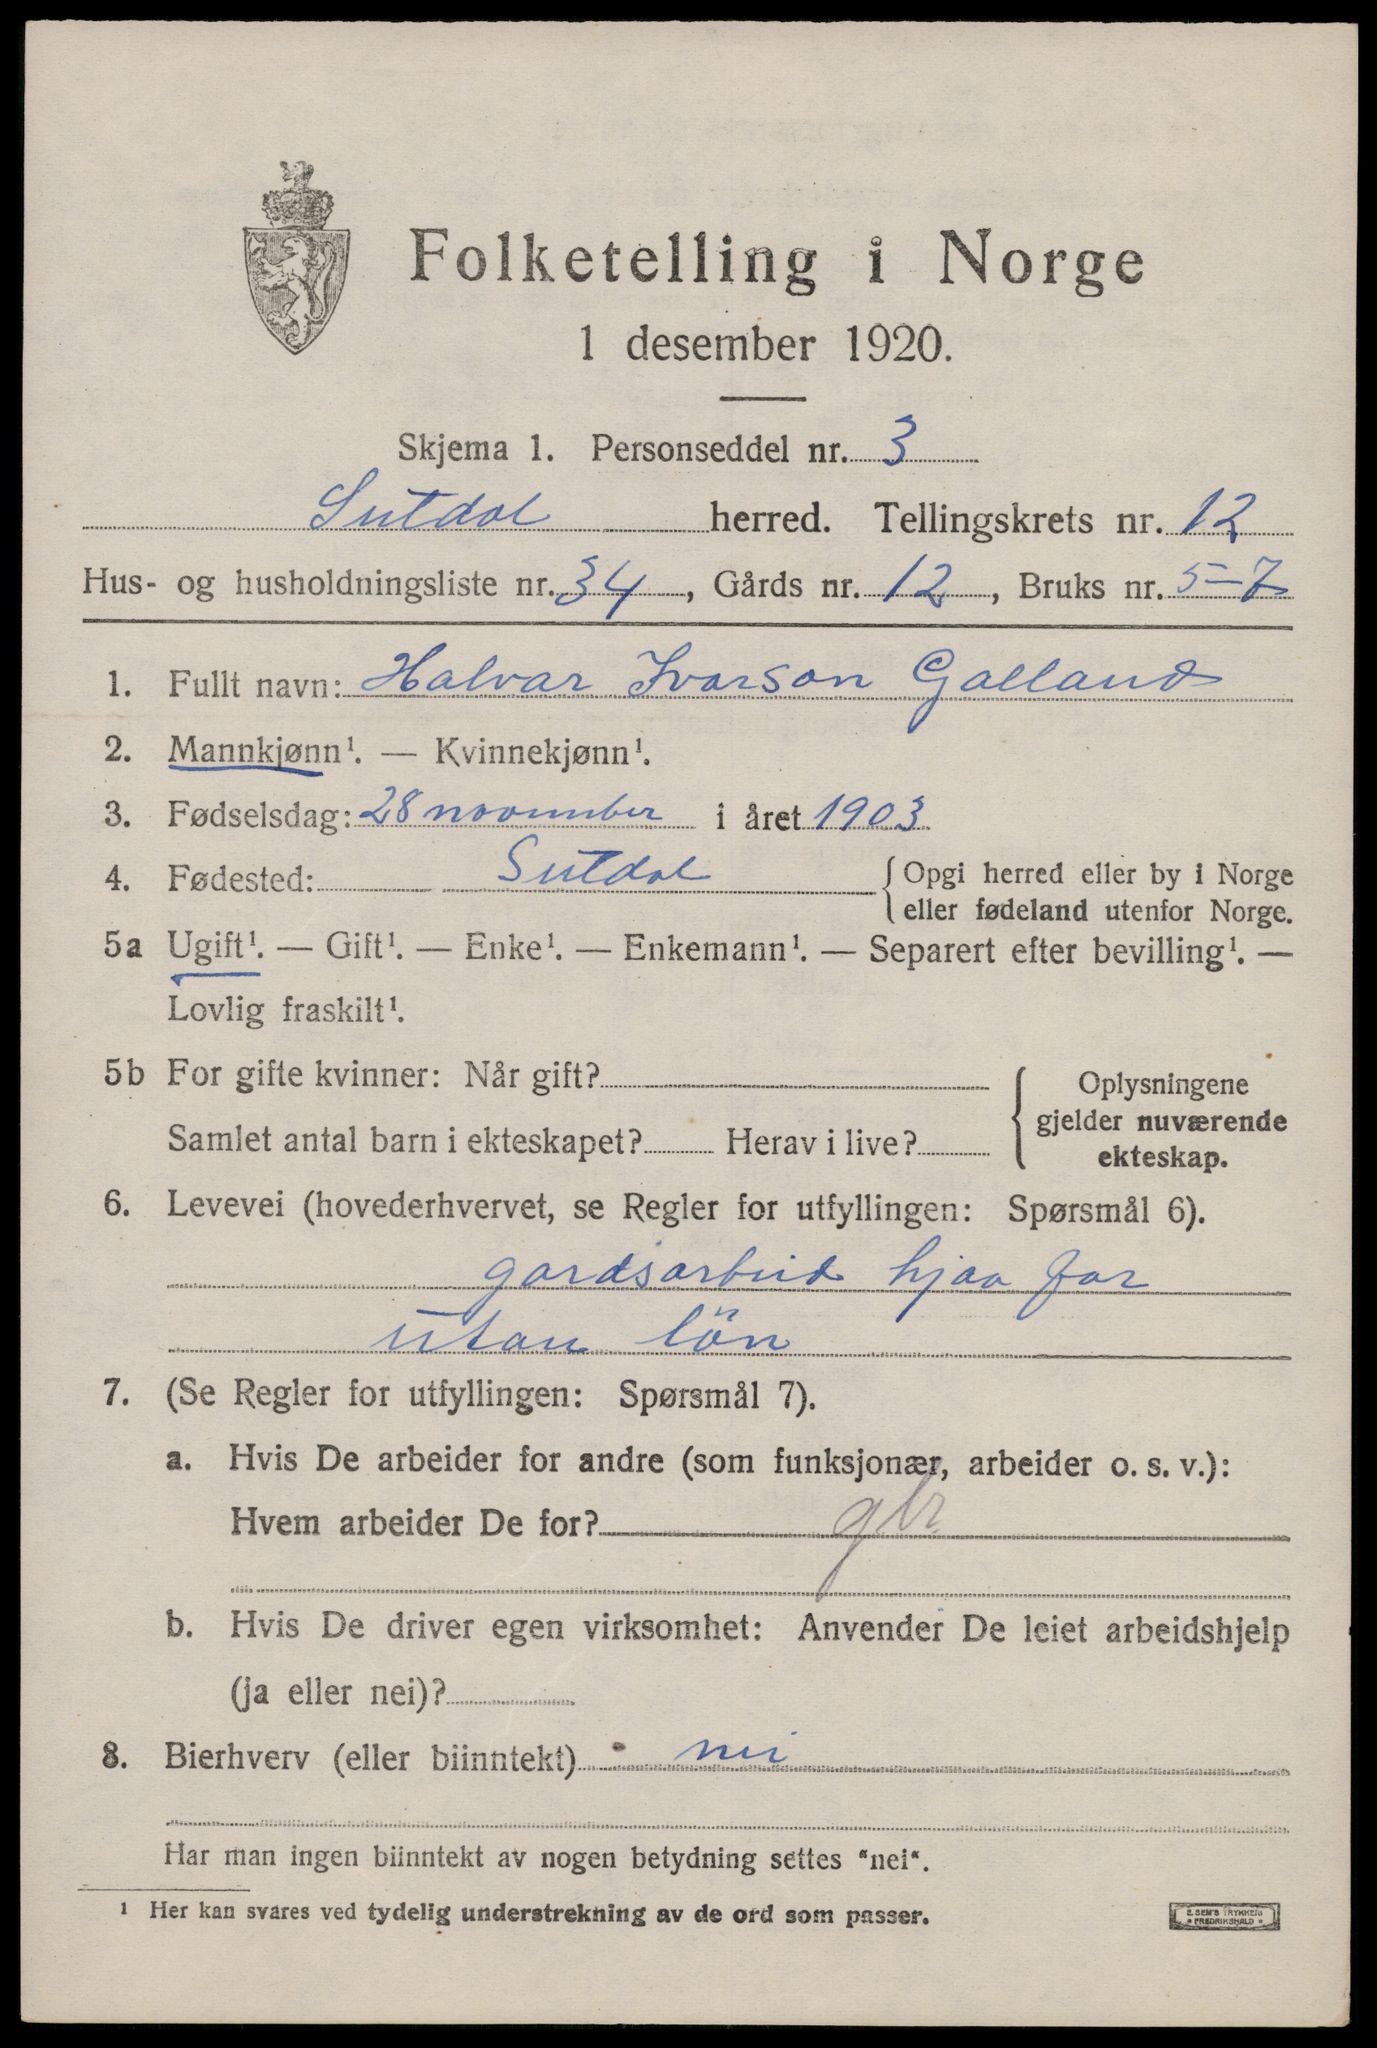 Folketelling i Norge
1 desember 1920.
Skjema 1. Personseddel nr. 3
Sutdal herred. Tellingskrets nr. 12
Hus- og husholdningsliste nr. 34, Gårds nr. 12, Bruks nr. 5-7
1. Fullt navn: Halvar Ivarson Galland
2. Mannkjønn¹. — Kvinnekjønn¹.
3. Fødselsdag: 28 november i året 1903
4. Fødested: Sutdal { Opgi herred eller by i Norge
eller fødeland utenfor Norge.
5a Ugift¹. — Gift¹. — Enke¹. — Enkemann¹. — Separert efter bevilling¹. —
Lovlig fraskilt¹.
5b For gifte kvinner: Når gift?
Samlet antal barn i ekteskapet? Herav i live?
{ Oplysningene
gjelder nuværende
ekteskap.
6. Levevei (hovederhvervet, se Regler for utfyllingen: Spørsmål 6).
gardsarbeid hjaa far
utan lön
7. (Se Regler for utfyllingen: Spørsmål 7).
a. Hvis De arbeider for andre (som funksjonær, arbeider o. s. v.):
Hvem arbeider De for? gbr
b. Hvis De driver egen virksomhet: Anvender De leiet arbeidshjelp
(ja eller nei)?
8. Bierhverv (eller biinntekt) nei
Har man ingen biinntekt av nogen betydning settes "nei".
¹ Her kan svares ved tydelig understrekning av de ord som passer.
E. SEM'S TRYKKERI
• FREDRIKSHALD •